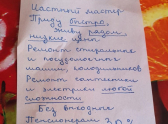 Частный мастер
Приду быстро,
живу рядом
низкие цены
Ремонт стиральных
и посудомоечных
машин, холодильников
Ремонт сантехники
и электрики любой
сложности
Без выходных
Пенсионерам 30%